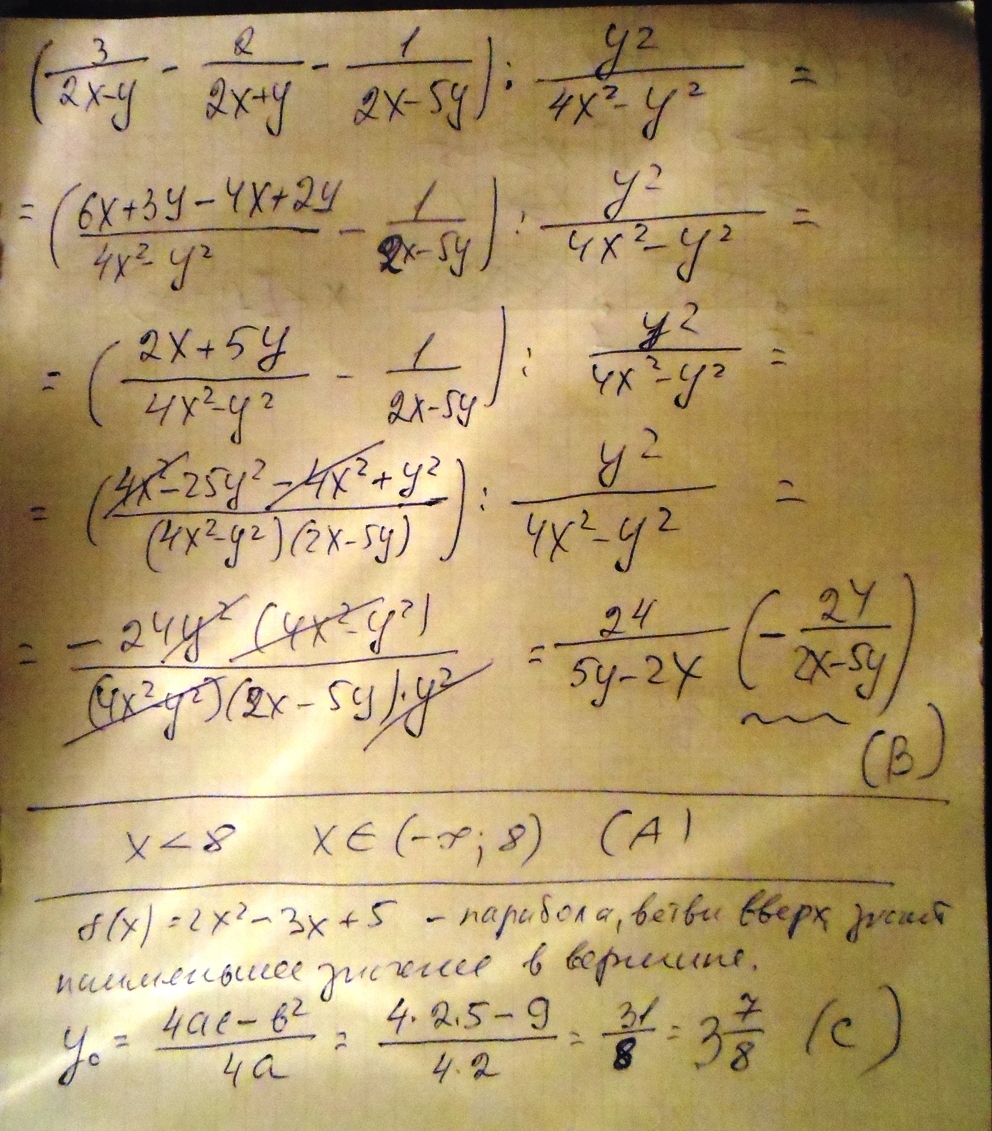 (3/(2x-y) - 2/(2x+y) - 1/(2x-5y)) : y²/(4x²-y²) =
= ((6x+3y-4x+2y)/(4x²-y²) - 1/(2x-5y)) : y²/(4x²-y²) =
= ((2x+5y)/(4x²-y²) - 1/(2x-5y)) : y²/(4x²-y²) =
= ((4x²-25y²-4x²+y²)/((4x²-y²)(2x-5y))) : y²/(4x²-y²) =
= (-24y²(4x²-y²))/((4x²-y²)(2x-5y)·y²) = 24/(5y-2x) (-24/(2x-5y))
(B)
x<8 x∈(-∞;8) (A)
f(x)=2x²-3x+5 - парабола, ветви вверх, значит
наименьшее значение в вершине.
y₀ = (4ac-b²)/4a = (4·2·5-9)/(4·2) = 31/8 = 3 7/8 (C)